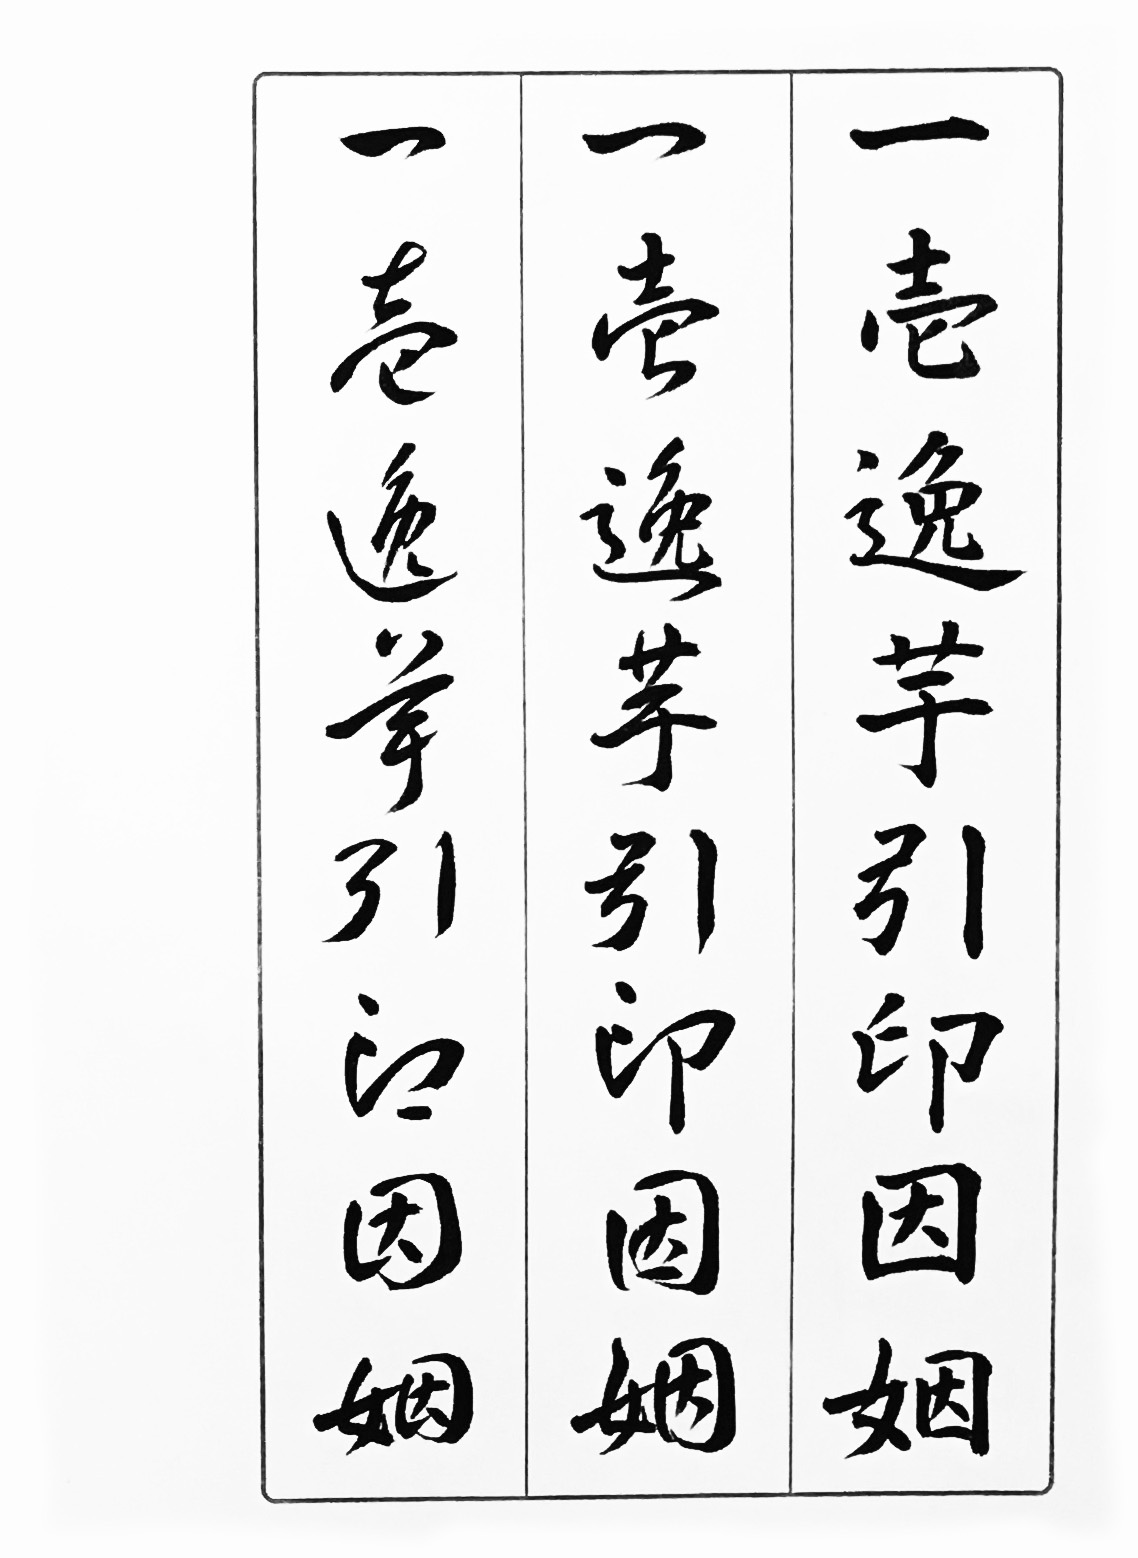 一壱逸芋引印因姻
一壱逸芋引印因姻
一壱逸芋引印因姻